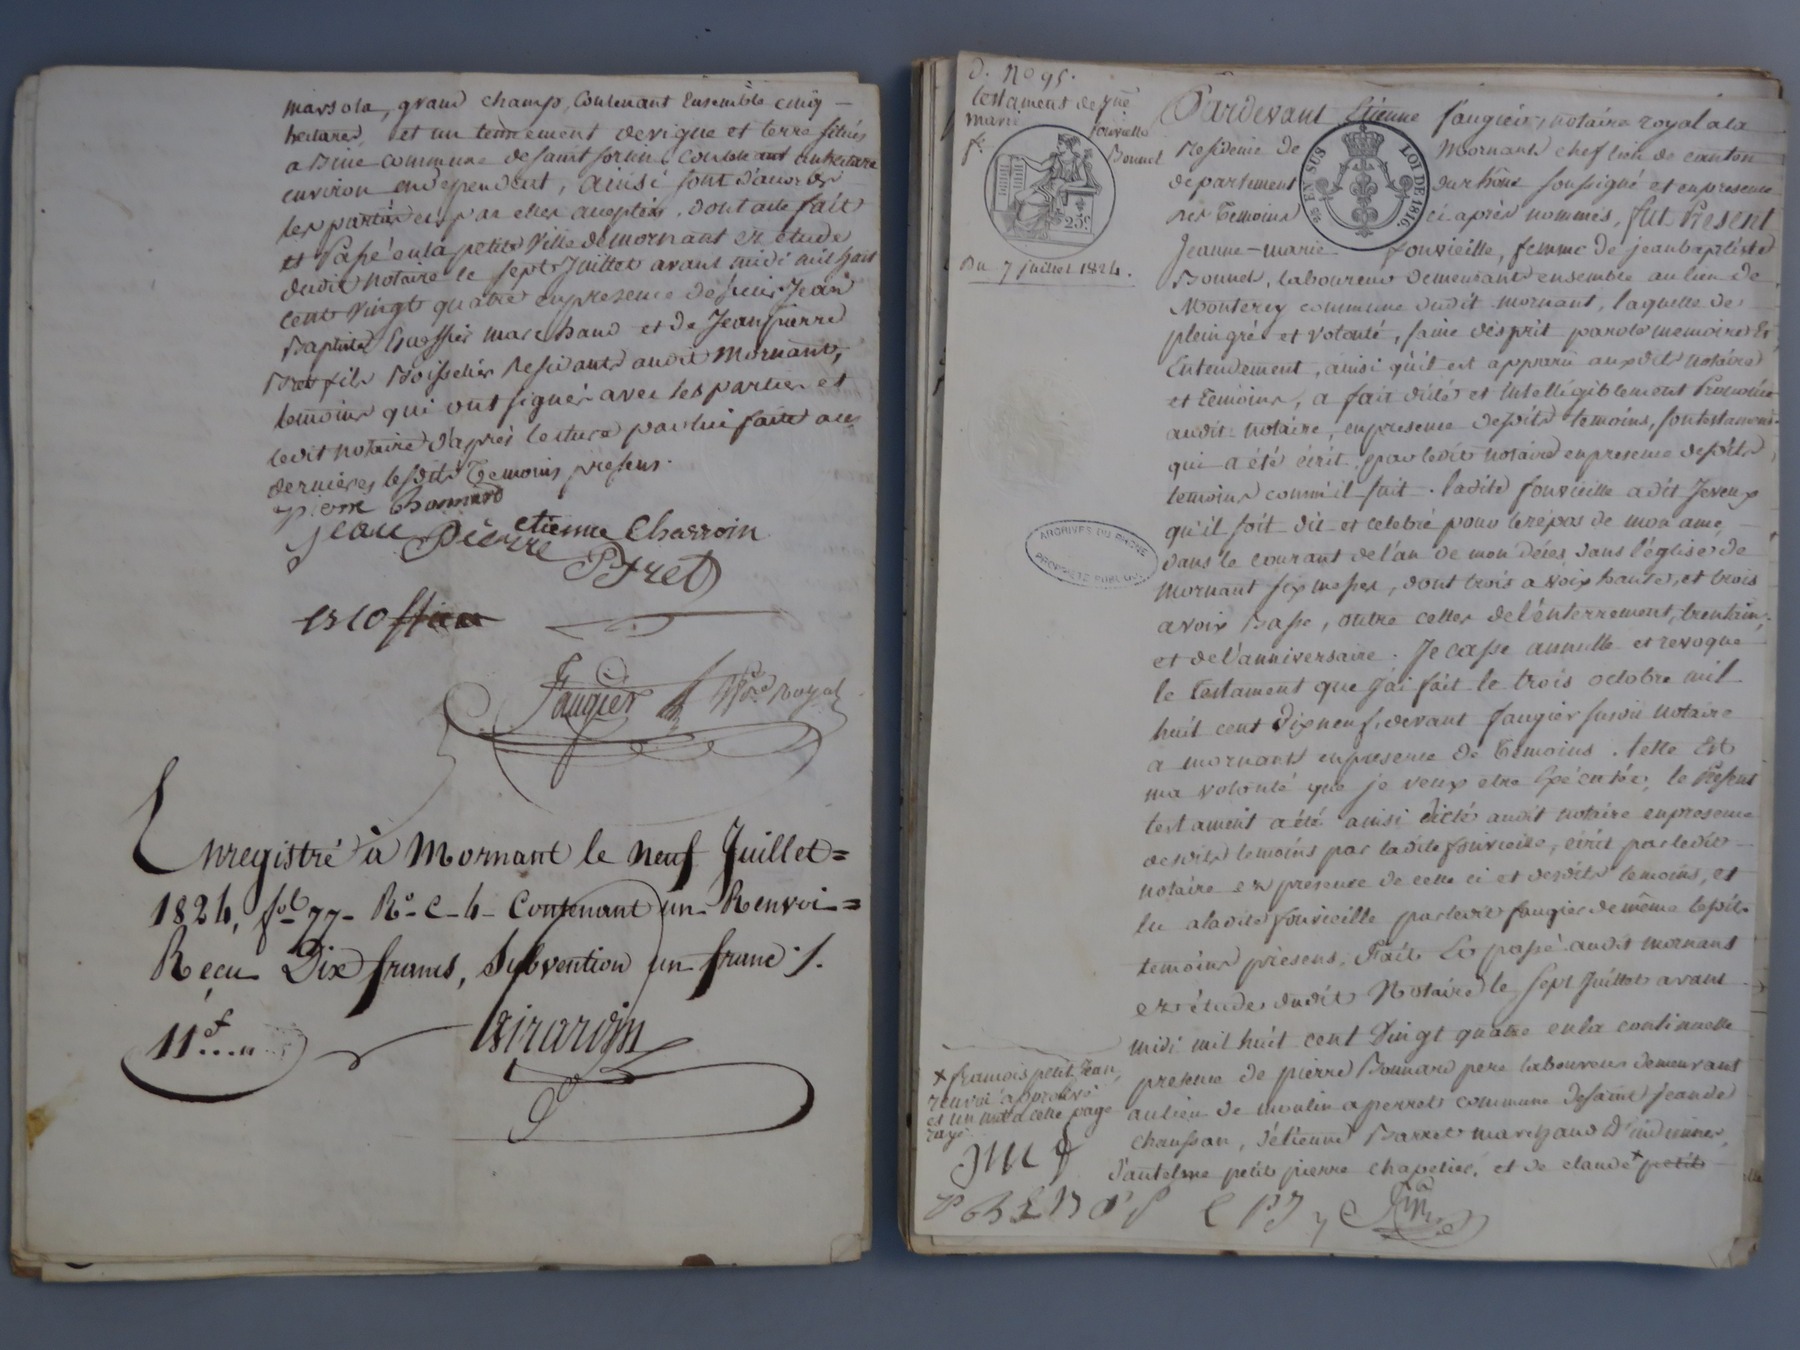 marsola, grand champ, contenant Ensemble cinq
hectares, et un tennement de vigne et terre situés
a Bine commune de saint sorlin, contenant un hectare
environ en dependant, ainsi sont d'accord
les parties et par elles accepter. dont acte fait
et Passé en la petite ville de mornant en étude
dudit notaire le sept Juillet avant midi mil huit
cent vingt quatre en presence de sieur Jean
Baptiste marchand et de Jean pierre
Bret fils Boisselier Residants audit Mornant,
temoins qui ont signés avec les parties et
ledit notaire d'après lecture par lui faite aux
dernieres lesdits Temoins presens.
pierre Bonnard
etienne Charroin
Jean Pierre Bret
Faugier Nre Royal
Enregistré à Mornant le neuf Juillet=
1824, fol 77 Ro C 4 Contenant un Renvoi=
Recu Dix francs, Subvention un franc /.
11f....
Girardin
d. No 95.
testament de Jne
marie fouvieille
fe Bonnel
25c
Du 7 juillet 1824.
Pardevant Etienne faugier, notaire royal a la
Residence de Mornant chef lieu de canton
departement du rhône soussigné et en presence
des temoins ci après nommés, fut Present
EN SUS LOI DE 1816.
Jeanne-marie fouvieille, femme de jean baptiste
Bonnel, laboureur demeurant ensemble au lieu de
Monterey commune dudit mornant, laquelle de
plein gré et volonté, saine d'esprit parole memoire Et
Entendement, ainsi qu'il est apparu auxdits notaire
et temoins, a fait dicté et Intelligiblement Prononcé
audit notaire, en presence desdits temoins, son testament
qui a été écrit par ledit notaire en presence desdits
temoins comm'il suit. ladite fouvieille a dit Je veux
qu'il soit dit et celebré pour le répos de mon ame,
dans le courant de l'an de mon déces dans l'église de
mornant six messes, dont trois a voix haute, et trois
a voix basse, outre celles de l'enterrement, trentain,
et de l'anniversaire. Je casse annulle et revoque
le testament que j'ai fait le trois octobre mil
huit cent dix neuf, devant faugier susdit notaire
a mornant en presence de temoins. telle Est
ma volonté que je veux etre Exécutée; le Present
testament a été ainsi dicté audit notaire en presence
desdits temoins par ladite fouvieille, écrit par ledit
notaire en présence de celle ci et desdits temoins, et
lu a ladite fouvieille par ledit faugier de même lesdits
temoins présens. Fait Et passé audit mornant
en étude dudit Notaire le sept Juillet avant
midi mil huit cent Vingt quatre en la continuelle
presence de pierre Bonnard pere laboureur demeurant
au lieu de moulin a perret commune de saint jean de
chaussan, d'étienne Barret marchand d'indiennes,
d'antelme petit pierre chapelier, et de claude + petit
ARCHIVES DU RHONE
PROPRIETE PUBLIQUE
+ francois petit Jean,
renvoi approuvé
et un mot a cette page
rayé
JM f